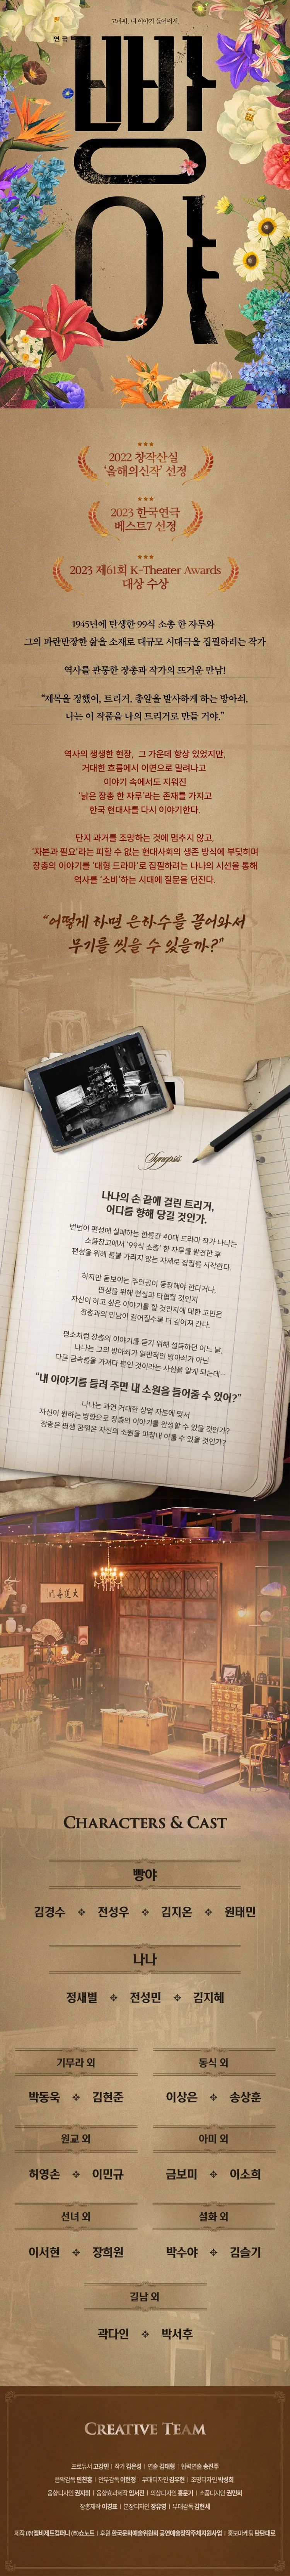 고마워. 내 이야기 들어줘서.
연극
빵야
2022 창작산실
‘올해의신작’ 선정
2023 한국연극
베스트7 선정
2023 제61회 K-Theater Awards
대상 수상
1945년에 탄생한 99식 소총 한 자루와
그의 파란만장한 삶을 소재로 대규모 시대극을 집필하려는 작가
역사를 관통한 장총과 작가의 뜨거운 만남!
“제목을 정했어, 트리거. 총알을 발사하게 하는 방아쇠.
나는 이 작품을 나의 트리거로 만들 거야.”
역사의 생생한 현장, 그 가운데 항상 있었지만,
거대한 흐름에서 이면으로 밀려나고
이야기 속에서도 지워진
‘낡은 장총 한 자루’라는 존재를 가지고
한국 현대사를 다시 이야기한다.
단지 과거를 조망하는 것에 멈추지 않고,
‘자본과 필요’라는 피할 수 없는 현대사회의 생존 방식에 부딪히며
장총의 이야기를 ‘대형 드라마’로 집필하려는 나나의 시선을 통해
역사를 ‘소비’하는 시대에 질문을 던진다.
“어떻게 하면 은하수를 끌어와서
무기를 씻을 수 있을까?”
Synopsis
나나의 손 끝에 걸린 트리거,
어디를 향해 당길 것인가.
번번이 편성에 실패하는 한물간 40대 드라마 작가 나나는
소품창고에서 ‘99식 소총’ 한 자루를 발견한 후
편성을 위해 물불 가리지 않는 자세로 집필을 시작한다.
하지만 돋보이는 주인공이 등장해야 한다거나,
편성을 위해 현실과 타협할 것인지
자신이 하고 싶은 이야기를 할 것인지에 대한 고민은
장총과의 만남이 길어질수록 더 깊어져 간다.
평소처럼 장총의 이야기를 듣기 위해 설득하던 어느 날,
나나는 그의 방아쇠가 일반적인 방아쇠가 아닌
다른 금속물을 가져다 붙인 것이라는 사실을 알게 되는데…
“내 이야기를 들려 주면 내 소원을 들어줄 수 있어?”
나나는 과연 거대한 상업 자본에 맞서
자신이 원하는 방향으로 장총의 이야기를 완성할 수 있을 것인가?
장총은 평생 꿈꿔온 자신의 소원을 마침내 이룰 수 있을 것인가?
Characters & Cast
빵야
김경수 전성우 김지온 원태민
나나
정새별 전성민 김지혜
기무라 외 동식 외
박동욱 김현준 이상은 송상훈
원교 외 아미 외
허영손 이민규 금보미 이소희
선녀 외 설화 외
이서현 장희원 박수야 김슬기
길남 외
곽다인 박서후
Creative Team
프로듀서 고강민 | 작가 김은성 | 연출 김태형 | 협력연출 송진주
음악감독 민찬홍 | 안무감독 이현정 | 무대디자인 김우현 | 조명디자인 박성희
음향디자인 권지휘 | 음향효과제작 임서진 | 의상디자인 홍문기 | 소품디자인 권민희
장총제작 이경표 | 분장디자인 장유영 | 무대감독 김현세
제작 (주)엠비제트컴퍼니 (주)쇼노트 | 후원 한국문화예술위원회 공연예술창작주체지원사업 | 홍보마케팅 탄탄대로